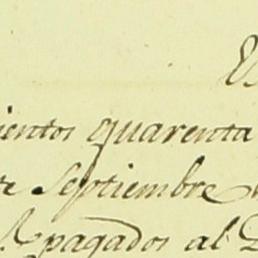 ientos quarenta
te Septiembre
pagados al